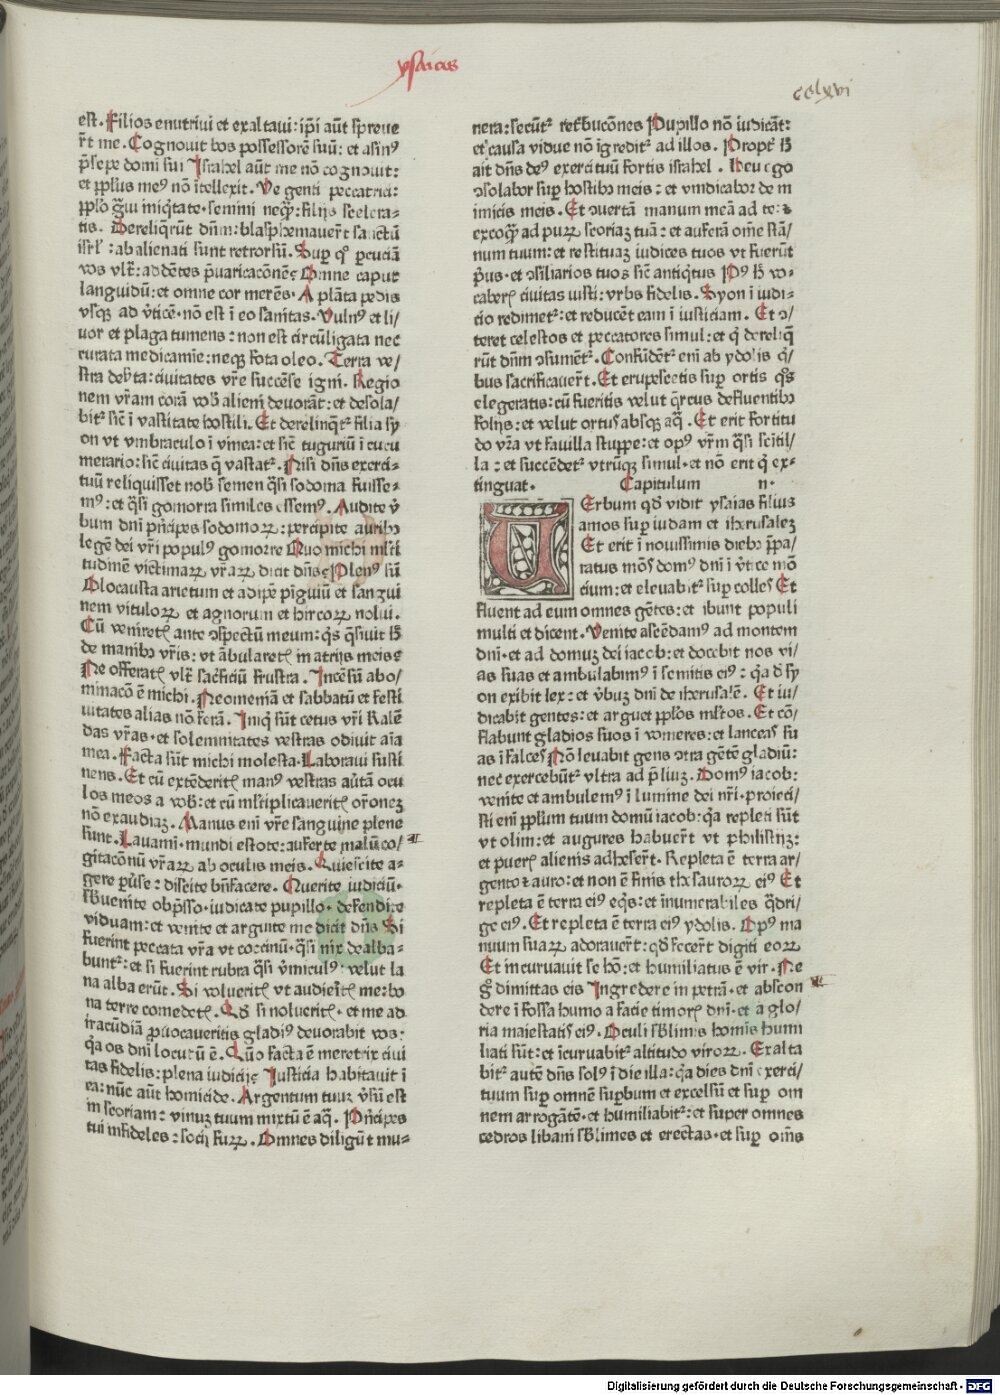 ysaias
cclxvi
est. Filios enutrivi et exaltavi: ip̄i aūt sp̄reve
r̄t me. Cognovit bos possessorē suū: et asinꝰ
p̄sepe domi sui Israhel aūt me nō cognovit:
et ꝑpl̄us meꝰ nō ītellexit. Ve genti peccatrici:
ꝑpl̄o gͣui iniq̄tate. semini neqͣꝫ: filijs scelera⸗
tis. Dereliq̄rūt dn̄m: blasphemaver̄t sanctū
isrl̄: abalienati sunt retrorsū. Suꝑ qͦ ꝑcuciā
vos vltͣ: addētes p̄varicacōnē Omne caput
languidū: et omne cor merēs. A plāta pedis
vsqꝫ ad v̄ticē. nō est ī eo sanitas. Vulnꝰ et li/
vor et plaga tumens: non est circūligata nec
curata medicamīe: neqꝫ fota oleo. Terra ve/
stra deẜta: civitates vr̄e succēse igni. Regio
nem vr̄am corā vob̄ alieni devorāt: et desola/
bitͬ sic̄ ī vastitate hostili. Et derelinq̄tͬ filia sy
on vt vmbraculo ī vinea: et sic̄ tuguriū ī cucu
merario: sic̄ civitas q̄ vastatͬ. Nisi dn̄s exerci⸗
tuū reliquisset nob̄ semen q̄si sodoma fuisse⸗
mꝰ: et q̄si gomorra similes essemꝰ. Audite v̄
bum dn̄i prīcipes sodomoꝝ: percipite auribꝰ
legē dei vr̄i populꝰ gomorre Quo michi ml̄ti
tudinē victimaꝝ vr̄aꝝ dicit dn̄s Plenꝰ sū
Holocausta arietum et adipē pīguiū et sangui
nem vituloꝝ et agnorum et hircoꝝ nolui.
Cū veniret̄ ante ꝯspectū meum: q̄s q̄sivit h̄
de manibꝰ vr̄is: vt ābularet̄ in atrijs meis
Ne offerat̄ vltͣ sacrificiū frustra. Incēsū abo/
minacō ē michi. Neomeniā et sabbatū et festi
uitates alias nō ferā. Iniq̄ sūt cetus vr̄i Kalē
das vr̄as. et solemnitates vestras odivit aīa
mea. Facta sūt michi molesta. Laboravi susti
nens. Et cū extēderit̄ manꝰ vestras avtā ocu
los meos a vob̄: et cū ml̄tiplicaverit̄ or̄oneꝫ
nō exaudiaꝫ. Manus eni vr̄e sanguine plene
sunt. Lavami. mundi estote: auferte malū co/
gitacōnū vr̄aꝝ ab oculis meis. Quiescite a⸗
gere ꝑuse: discite bn̄facere. Querite iudiciū.
sb̄uenite obp̄sso. iudicate pupillo. defendite
viduam: et venite et arguite me dicit dn̄s Si
fuerint peccata vr̄a vt coccinū. q̄si nix dealba⸗
buntͬ: et si fuerint rubra q̄si v̄miculꝰ. velut la
na alba erūt. Si volverit̄ vt audieit̄ me: bo
na terre comedet̄. Qd̄ si noluerit̄. et me ad
iracūdiā ꝓvocaveritis gladiꝰ devorabit vos:
q̄a os dn̄i locutū ē. Qūo facta ē meretrix civi
tas fidelis: plena iudicij Iusticia habitavit ī
ea: nūc aūt homicide. Argentum tuuꝫ v̄sū est
in scoriam: vinuꝫ tuum mixtū ē aq̄. Prīcipes
tui infideles: socij furꝝ. Omnes diligūt mu⸗
nera: secūtͬ retͥbucōnes Pupillo nō iudicāt:
et causa vidue nō īgreditͬ ad illos. Proptͬ h̄
ait dn̄s deꝰ exercituū fortis israhel. Heu ego
ꝯsolabor suꝑ hostibꝰ meis: et vindicabor de in
imicis meis. Et ꝯvertā manum meā ad te: ⁊
excoqͣ ad puꝝ scoriaꝫ tuā: et auferā om̄e stā/
num tuum: et restituaꝫ iudices tuos vt fuerūt
pͥus. et ꝯsiliarios tuos sic̄ antiqͥtus Pꝰ h̄ vo⸗
caber̄ civitas iusti: vrbs fidelis. Syon ī iudi⸗
cio redimetͬ: et reducēt eam ī iusticiam. Et ꝯ/
teret celestos et peccatores simul: et qͥ dereliq̄
rūt dn̄m ꝯsumētͬ. Confūdētͬ eni ab ydolis qͥ/
bus sacrificaver̄t. Et erupescetis suꝑ ortis q̄s
elegeratis: cū fueritis velut q̄rcus defluentibꝰ
folijs: et velut ortus absqꝫ aq̄. Et erit fortitu
do vr̄a vt favilla stuppe: et opꝰ vr̄m q̄si scītil/
la: et succēdetͬ vtrūqꝫ simul. et nō erit qͥ ex⸗
tinguat. Capitulum II.
VErbum qd̄ vidit ysaias filius
amos suꝑ iudam et iherusaleꝫ
Et erit ī novissimis diebꝰ p̄pa/
ratus mōs domꝰ dn̄i ī v̄tice mō
cium: et elevabitͬ suꝑ colles Et
fluent ad eum omnes gētes: et ibunt populi
multi et dicent. Venite ascēdamꝰ ad montem
dn̄i. et ad domuꝫ dei iacob: et docebit nos vi/
as suas et ambulabimꝰ ī semitis eiꝰ: q̄a d̄ sy
on exibit lex: et v̄buꝫ dn̄i de iherusalē. Et iu/
dicabit gentes: et arguet ꝑpl̄os ml̄tos. Et cō/
flabunt gladios suos ī vomeres: et lanceas su
as ī falces Nō levabit gens ꝯtra gētē gladiū:
nec exercebūtͬ vltra ad p̄liuꝫ. Domꝰ iacob:
venite et ambulemꝰ ī lumine dei nr̄i. proieci/
sti eni ꝑpl̄um tuum domū iacob: q̄a repleti sūt
vt olim: et augures habuer̄t vt philistijꝫ:
et puer̄ alienis adheser̄t. Repleta ē terra ar/
gento ⁊ auro: et non ē finis thesauroꝝ eiꝰ Et
repleta ē terra eiꝰ eq̄s: et īnumerabiles q̄dri/
ge eiꝰ. Et repleta ē terra eiꝰ ydolis. Opꝰ ma
nuum suaꝝ adoraver̄t: qd̄ fecer̄t digiti eoꝝ
Et incurvavit se hō: et humiliatus ē vir. Ne
gͦ dimittas eis Ingredere in petrā. et abscon
dere ī fossa humo a facie timor̄ dn̄i. et a glo/
ria maiestatis eiꝰ. Oculi sb̄limis homīs humi
liati sūt: et īcurvabitͬ altitudo viroꝝ. Exalta
bitͬ autē dn̄s solꝰ ī die illa: q̄a dies dn̄i exerci/
tuum suꝑ omnē suꝑbum et excelsū et suꝑ om
nem arrogātē. et humiliabitͬ: et super omnes
cedros libani sb̄limes et erectas. et suꝑ om̄s
Digitalisierung gefördert durch die Deutsche Forschungsgemeinschaft - DFG